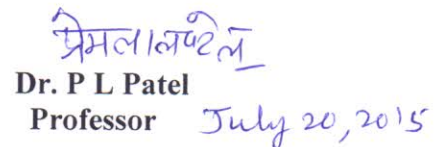 प्रेमलाल पटेल
Dr. P L Patel
Professor July 20, 2015